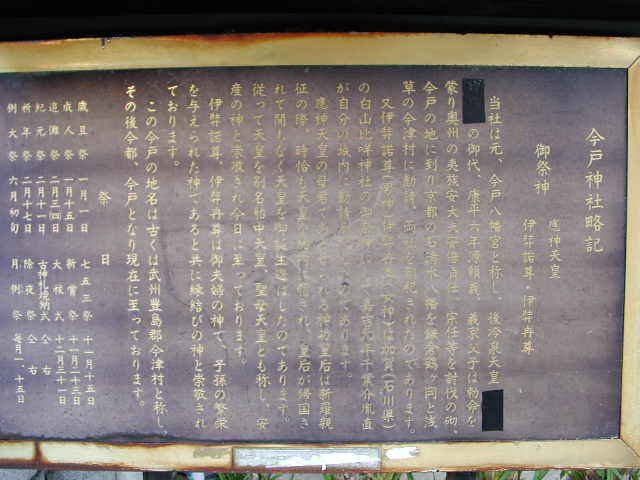 今戸神社略記
御祭神
應神天皇
伊弉諾尊・伊弉冉尊
当社は元、今戸八幡宮と称し、後冷泉天皇
の御代、康平六年源頼義、義家父子は勅命を
蒙り奥州の夷族安大夫安倍貞任、宗任等を討伐の砌、
今戸の地に到り京都の石清水八幡を鎌倉鶴ヶ岡と浅
草の今津村に勧請、両社を創祀されたのであります。
又伊弉諾尊(男神)伊弉冉尊(女神)は加賀(石川県)
の白山比咩神社の御祭神 千葉介胤直
が自分の城内に勧請 であります。
應神天皇の母君 神功皇后は新羅親
征の際、時恰も天皇を 皇后が帰国さ
れて間もなく天皇を御誕生遊ばしたのであります。
従って天皇を別名胎中天皇、聖母天皇とも称し、安
産の神と崇敬され今日に至っております。
伊弉諾尊、伊弉冉尊は御夫婦の神で、子孫の繁栄
を与えられた神であると共に縁結びの神と崇敬され
ております。
この今戸の地名は古くは武州豊島郡今津村と称し、
その後今都、今戸となり現在に至っております。
祭日
歳旦祭 一月一日 七五三祭 十一月十五日
成人祭 一月十五日 新嘗祭 十一月二十三日
追儺祭 二月三四日 大祓式 十二月三十一日
紀元祭 二月十一日 古神札焼納式 仝右
祈年祭 二月十七日 除夜祭 仝右
例大祭 六月初旬 月例祭 毎月一、十五日